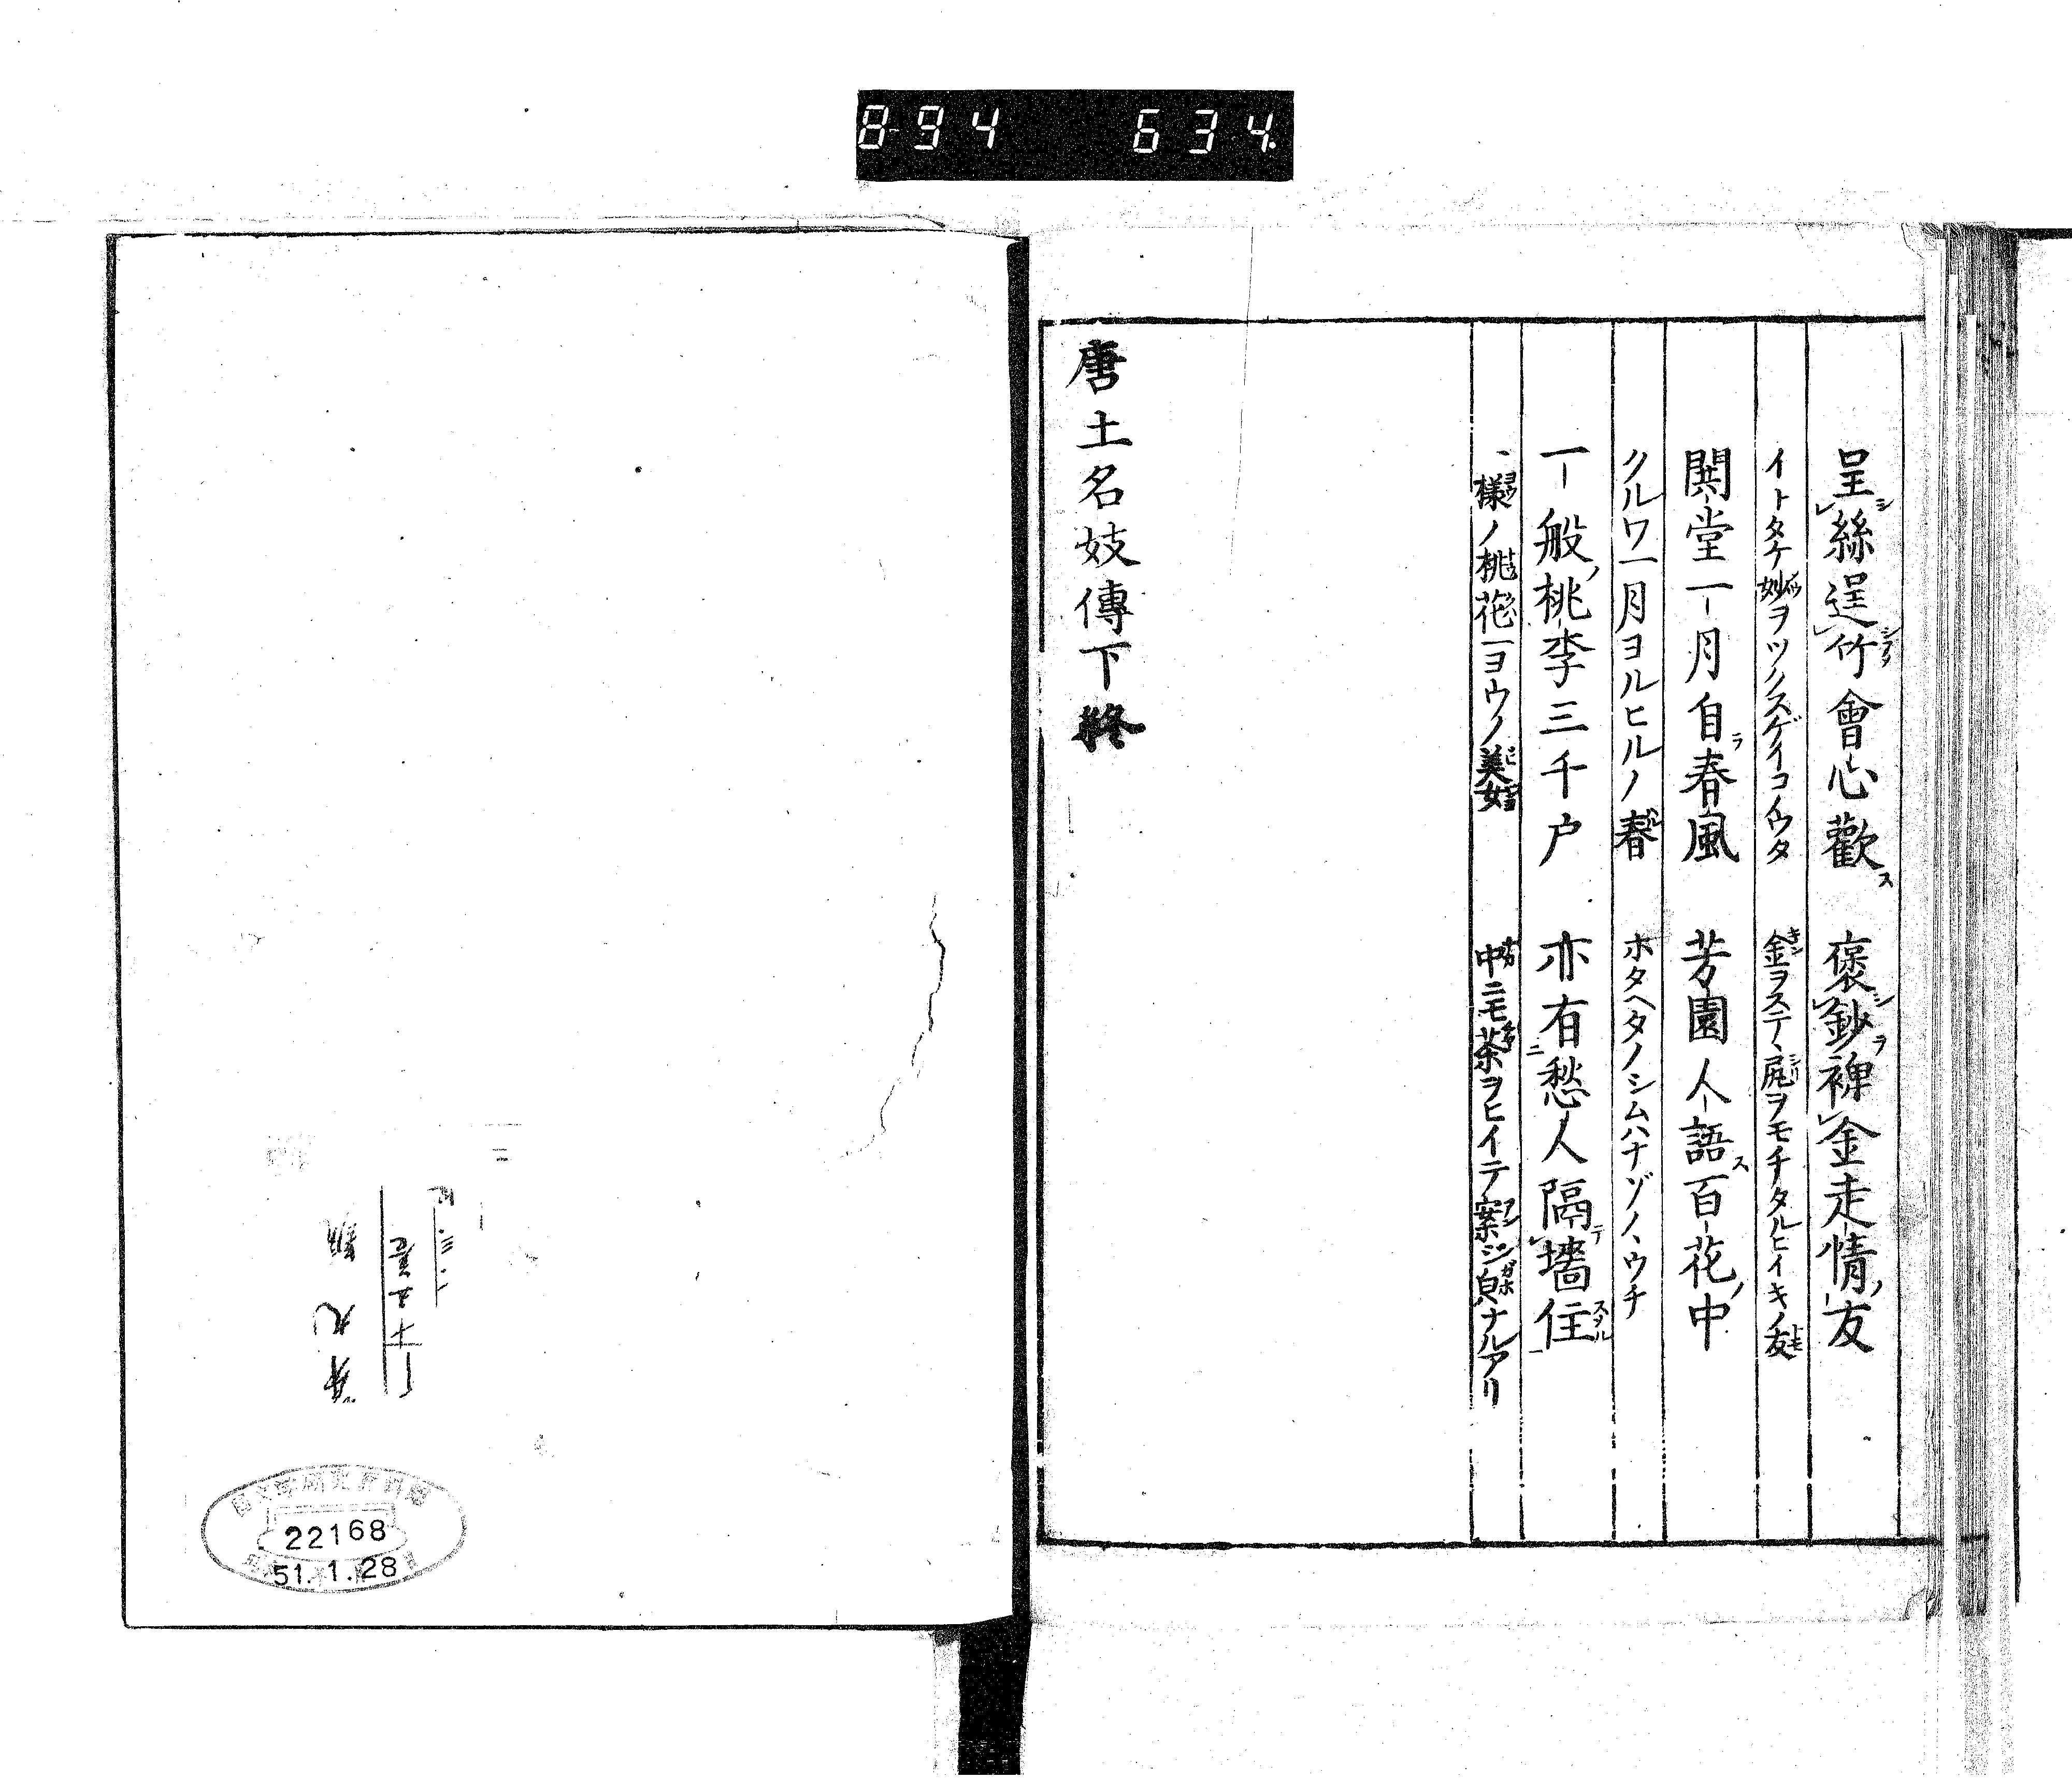 894 634
呈絲逞竹會心歡 褒鈔裨金走情友
イトタケ妙ヲツクスゲイコイウタ 金ヲステヽ尻ヲモチタルヒイキノ友
閧堂一月自春風 芳園人語百花中
クルワ一月ヨルヒルノ春 ホタヘタノシムハナゾノヽウチ
一般桃李三千戸 亦有愁人隔墻住
様ノ桃花一ヨウノ美女 中ニモ茶ヲヒイテ案ジ皃ナルアリ
唐土名妓傳下終
國文学研究資料館
22168
51.1.28